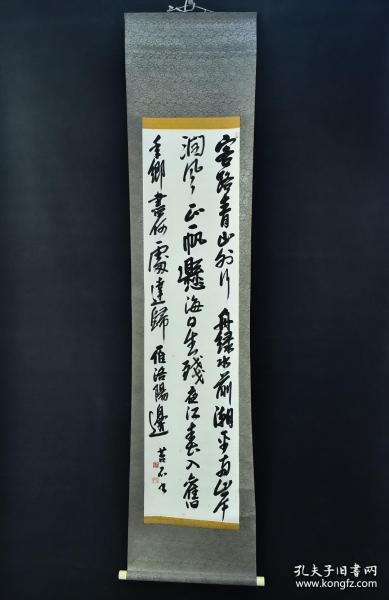 客路青山外行舟緑水前潮平両岸
濶風正一帆懸海日生殘夜江春入舊
年鄉書何處達歸雁洛陽邊
孔夫子旧书网
www.kongfz.com